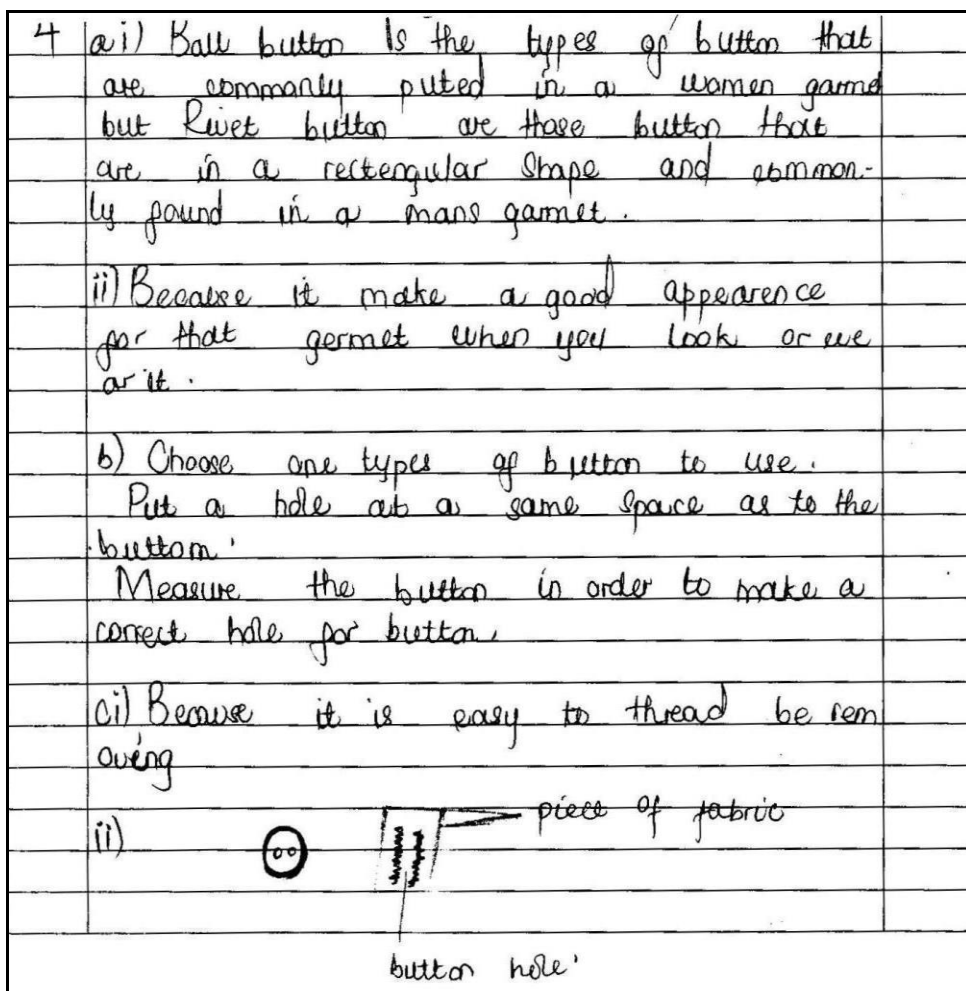 4 a i) Ball button Is the types of button that
are commonly puted in a women garmet
but Rivet button are those button that
are in a rectengular Shape and common-
ly found in a mans garmet.
ii) Because it make a good appearence
for that germet when you look or we
ar it.
b) Choose one types of button to use.
Put a hole at a same space as to the
buttom.
Measure the button in order to make a
correct hole for button.
ci) Because it is easy to thread be rem
oving
ii)
piece of fabric
button hole.